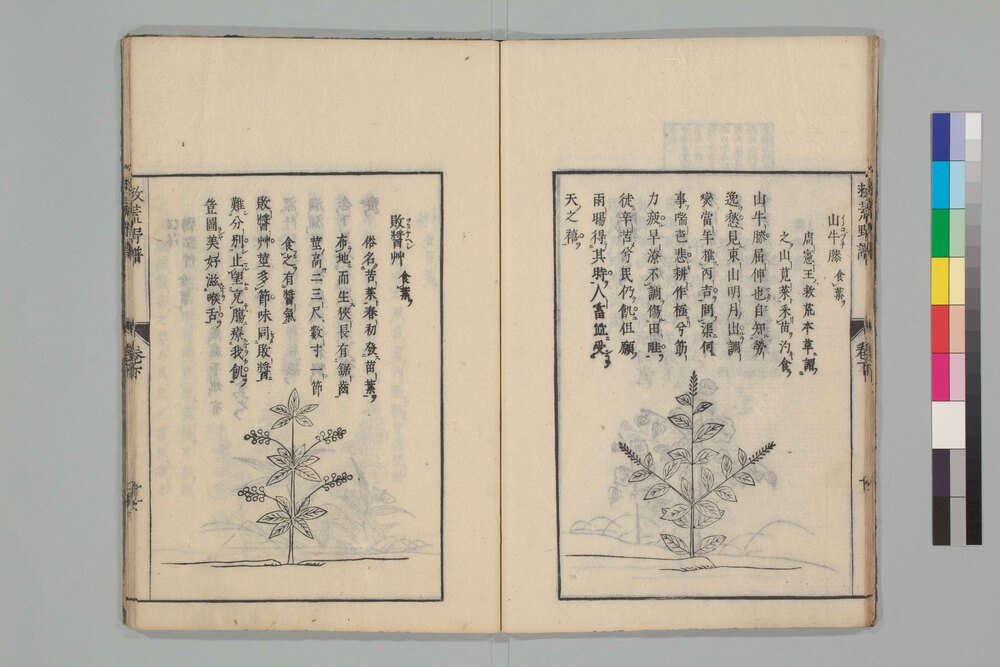 山牛膝 食葉
周憲王救荒本草謂
之山莧菜釆苗灼食
山牛膝屈伸也自知勞
逸愁見東山明月出調
燮當年推丙吉問渠何
事喘芭悲耕作極兮筋
力疲旱潦不調傷田畦
徒辛苦兮民仍飢但願
雨暘得其時人畜並受
天之禧
救荒野譜
卷下
敗醬艸 食葉
俗名苦菜春初發苗葉
布地而生狹長有鋸齒
莖高二三尺數寸一節
食之有醬氣
敗醬艸莖多節味同敗醬
難分別止望充腸療我飢
豈圖美好滋喉舌
救荒野譜
卷下